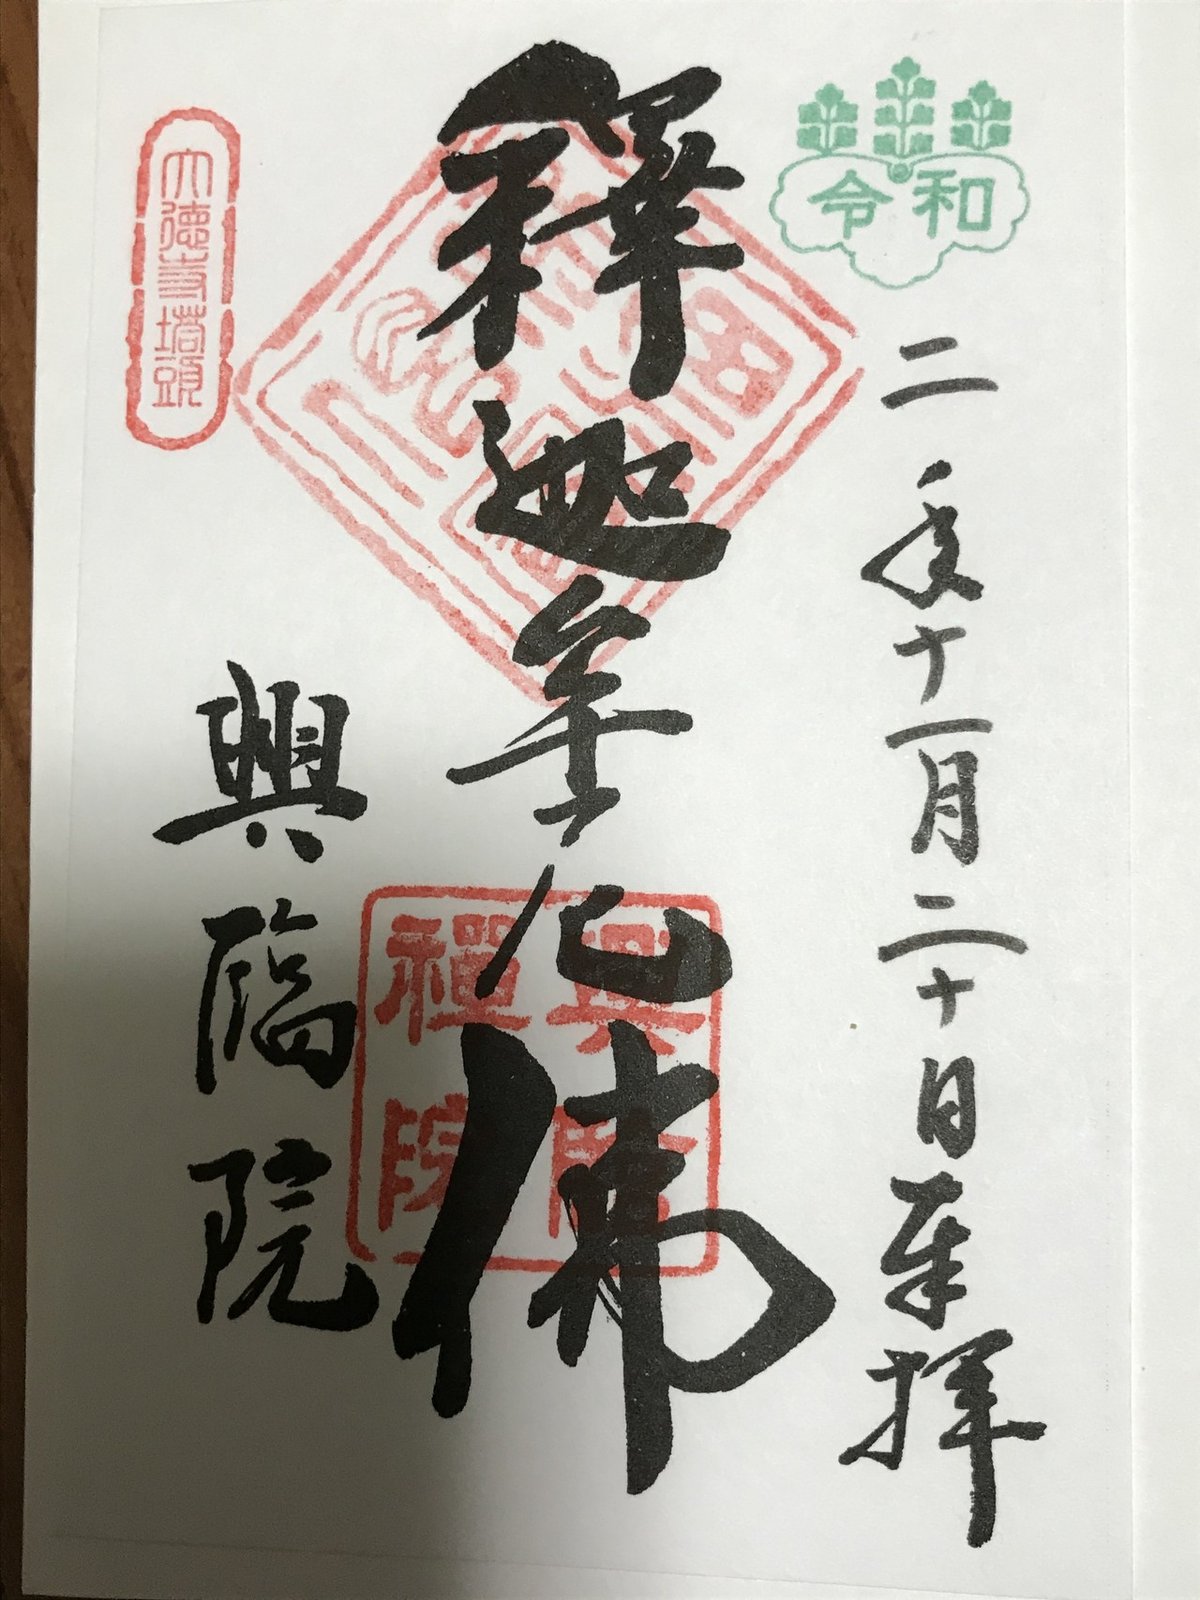 令和
二年十一月二十日奉拝
釋迦牟尼佛
興臨禅院
興臨院
大徳寺塔頭